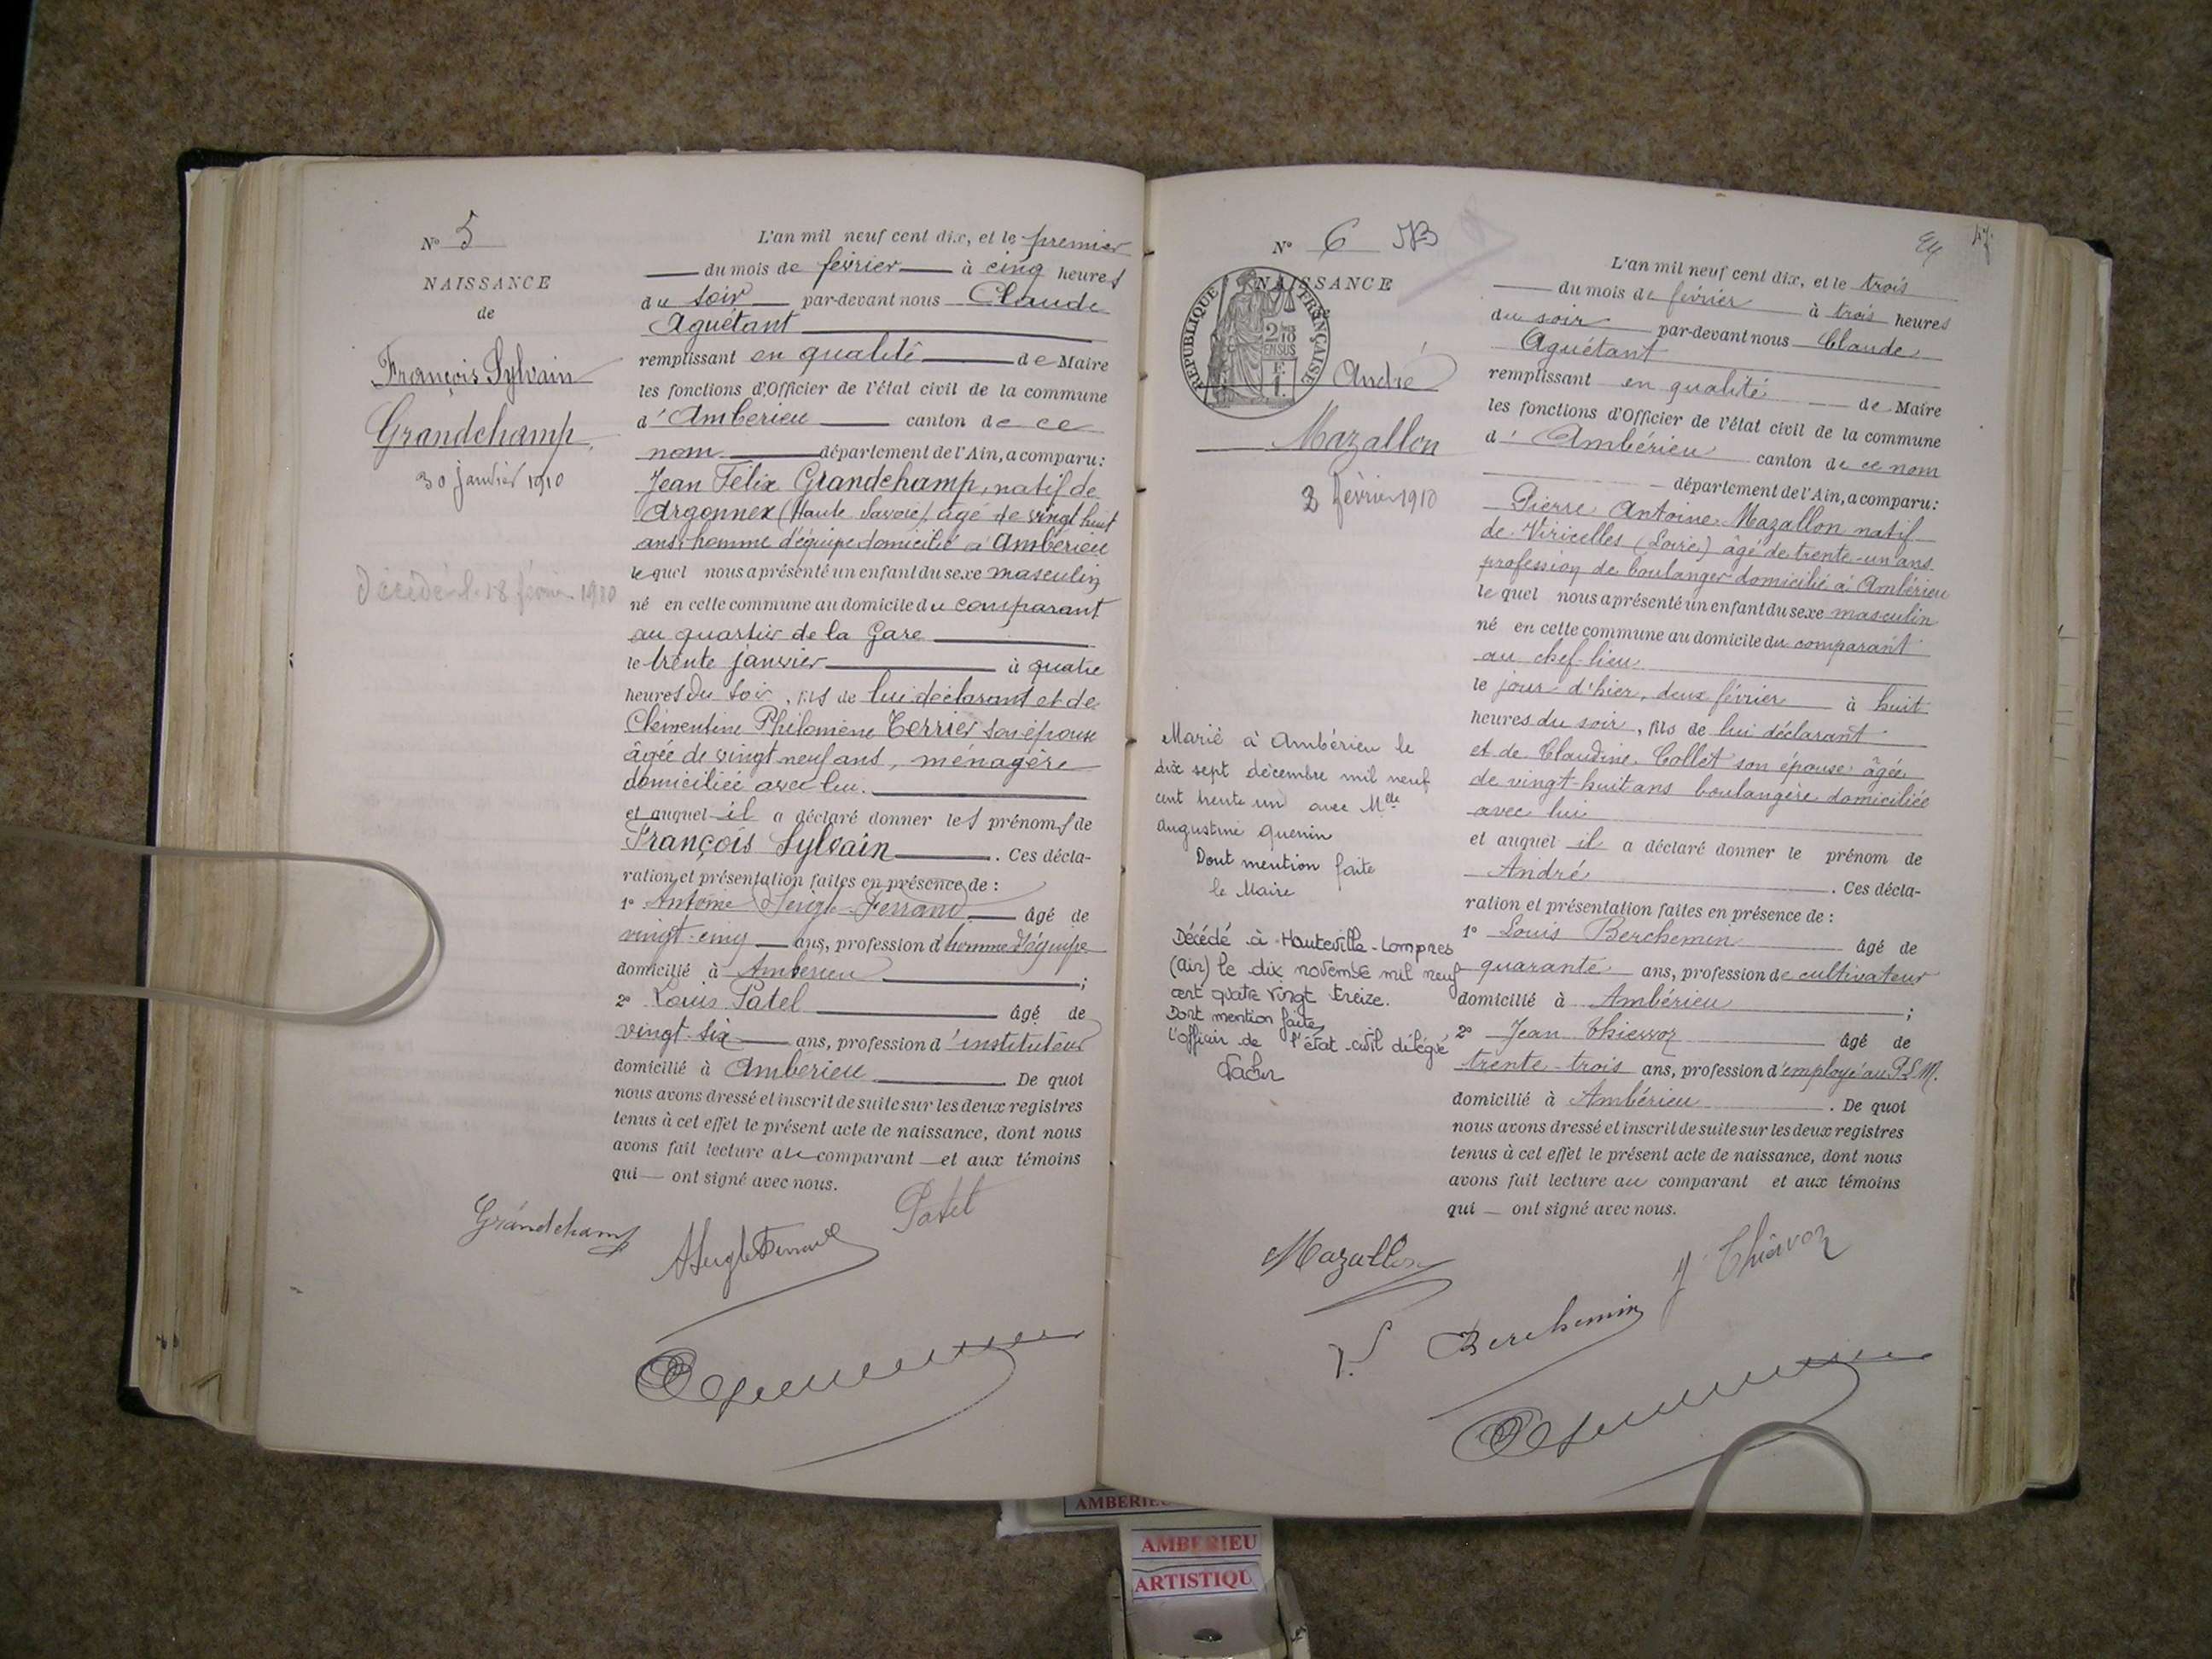 N° 5
NAISSANCE
de
François Sylvain
Grandchamp
30 janvier 1910
Décédé le 18 février 1910
L'an mil neuf cent dix, et le premier
du mois de février à cinq heures
du soir par-devant nous Claude
Aguétant
remplissant en qualité de Maire
les fonctions d'Officier de l'état civil de la commune
d'Ambérieu canton de ce
nom département de l'Ain, a comparu:
Jean Félix Grandchamp, natif de
Argonnex (Haute Savoie), âgé de vingt huit
ans, homme d'équipe domicilié à Ambérieu
lequel nous a présenté un enfant du sexe masculin
né en cette commune au domicile du comparant
au quartier de la Gare
le trente janvier à quatre
heures du soir, fils de lui déclarant et de
Clémentine Philomène Terrier son épouse
âgée de vingt neuf ans, ménagère
domiciliée avec lui.
et auquel il a déclaré donner les prénoms de
François Sylvain. Ces décla-
ration et présentation faites en présence de :
1° Antoine Seigle-Ferrand âgé de
vingt-cinq ans, profession d'homme d'équipe
domicilié à Ambérieu ;
2° Louis Patel âgé de
vingt-six ans, profession d'instituteur
domicilié à Ambérieu. De quoi
nous avons dressé et inscrit de suite sur les deux registres
tenus à cet effet le présent acte de naissance, dont nous
avons fait lecture au comparant et aux témoins
qui ont signé avec nous.
Grandchamp
Patel
N° 6
NAISSANCE
RÉPUBLIQUE FRANÇAISE
2/10 EN SUS
André
Mazallon
2 février 1910
Marié à Ambérieu le
dix sept décembre mil neuf
cent trente un avec Melle
Augustine Quenin
Dont mention faite
le Maire
Décédé à Hauteville-Lompnes
(Ain) le dix novembre mil neuf
cent quatre vingt treize.
Dont mention faite,
l'officier de l'état civil délégué
47
L'an mil neuf cent dix, et le trois
du mois de février à trois heures
du soir par-devant nous Claude
Aguétant
remplissant en qualité de Maire
les fonctions d'Officier de l'état civil de la commune
d'Ambérieu canton de ce nom
département de l'Ain, a comparu:
Pierre Antoine Mazallon natif
de Viricelles (Loire) âgé de trente-un ans
profession de boulanger domicilié à Ambérieu
lequel nous a présenté un enfant du sexe masculin
né en cette commune au domicile du comparant
au chef-lieu
le jour d'hier, deux février à huit
heures du soir, fils de lui déclarant
et de Claudine Collet son épouse âgée
de vingt-huit ans boulangère domiciliée
avec lui
et auquel il a déclaré donner le prénom de
André. Ces décla-
ration et présentation faites en présence de :
1° Louis Berchemin âgé de
quarante ans, profession de cultivateur
domicilié à Ambérieu ;
2° Jean Thiervoz âgé de
trente-trois ans, profession d'employé au P.L.M.
domicilié à Ambérieu. De quoi
nous avons dressé et inscrit de suite sur les deux registres
tenus à cet effet le présent acte de naissance, dont nous
avons fait lecture au comparant et aux témoins
qui ont signé avec nous.
Mazallon
J Thiervoz
Berchemin
AMBERIEU
ARTISTIQU